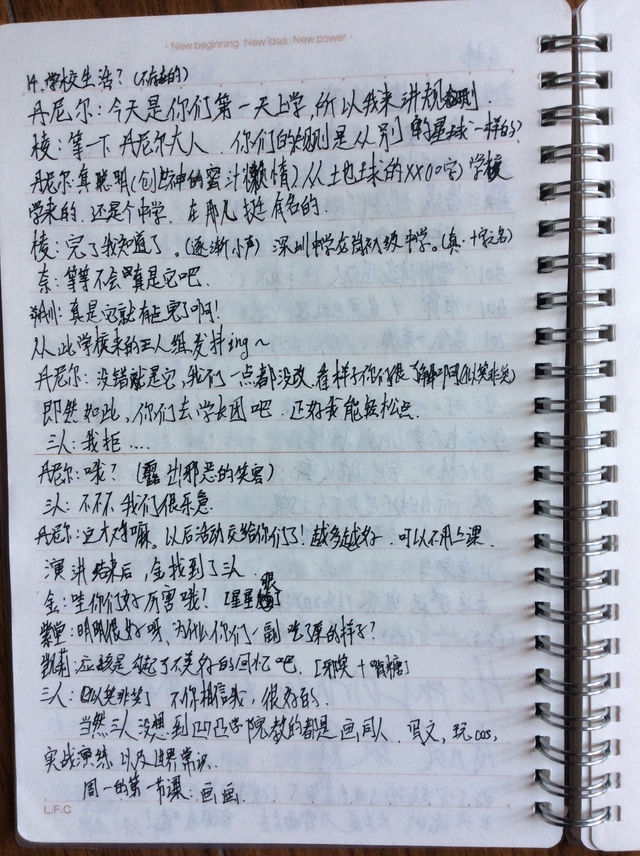 New beginning New idea New power
14.学校生活？（不存在的）
丹尼尔：今天是你们第一天上学，所以我来讲规则
棱：等一下 丹尼尔大人．你们的规则是从别的星球一样的？
丹尼尔：真聪明（创世神的蜜汁 情）从土也球的XX（口字）学校
学来的．还是个中学．在那儿挺有名的．
棱：完了我知道了。（逐渐小声）深圳中学龙岗初级中学。（真·十字之名）
奈：等等不会真是它吧．
：真是它就有点完了啊！
从此学校来的三人组发抖ing~
丹尼尔：没错就是它，我们一点都没改．看样子你们很 啊（似笑非笑）
即然如此，你们去学长团吧．还好我能轻松点．
三人：我拒....
丹尼尔：哦？（露出邪恶的笑容）
三人：不不不 我们很乐意．
丹尼尔：这才对嘛。以后活动交给你们了！越多越好．可以不用上课．
演讲结束后，金找到了三人．
金：哇你们好厉害哦！[星星眼]
紫堂：明明很好呀．为什么你们一副吃了 的样子？
凯莉：应该是 起了不美好的回忆吧．[邪笑+啃糖]
三人：[似笑非笑] 不你相信我，很好的．
当然三人没想到凹凸学院教的都是画同人．写文，玩cos，
实战演练 以及世界常识．
周一的第一节课：画画．
L.F.C